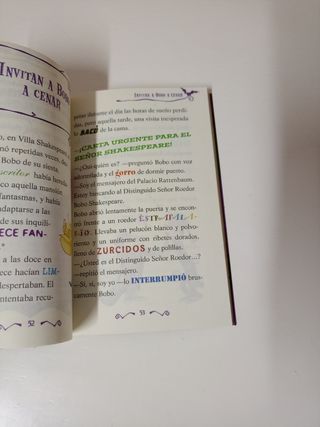 INVITAN A BOBO
A CENAR
o, en Villa Shakespeare,
nó repetidas veces, des-
Bobo de su siesta.
escritor había hereda-
aquella mansión
fantasmas, y había
adaptarse a las
ECE FAN-
a las doce en
hacían LIM-
despertaban. El
intentaba recu-
52
INVITAN A BOBO A CENAR
perar durante el día las horas de sueño perdi-
das, pero aquella tarde, una visita inesperada
lo SACÓ de la cama.
—¡CARTA URGENTE PARA EL
SEÑOR SHAKESPEARE!
—¿Qui-quién es? —preguntó Bobo con voz
somnolienta y el gorro de dormir puesto.
—Soy el mensajero del Palacio Rattenbaum.
Estoy buscando al Distinguido Señor Roedor
Bobo Shakespeare.
Bobo abrió lentamente la puerta y se encon-
tró frente a un roedor ESTI-RALA-
IJO. Llevaba un pelucón blanco y polvo-
riento y un uniforme con ribetes dorados,
lleno de ZURCIDOS y de polillas.
—¿Usted es el Distinguido Señor Roedor...?
—repitió el mensajero.
—Sí, sí, soy yo —lo INTERRUMPIÓ brus-
camente Bobo.
53